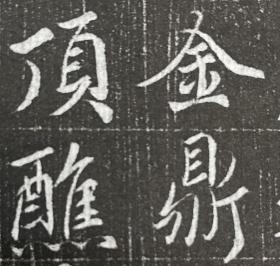 金鼎
頂醮